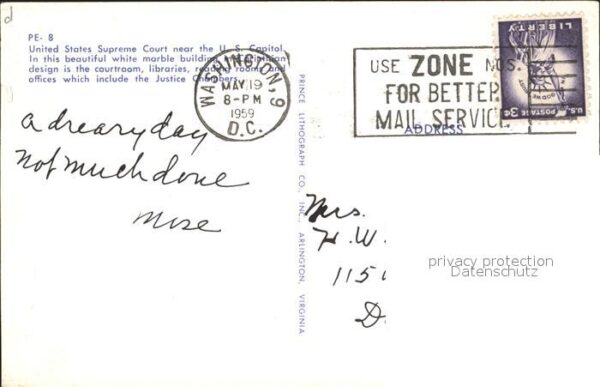 d
PE- 8
United States Supreme Court near the U. S. Capitol.
In this beautiful white marble building of Corinthian
design is the courtroom, libraries, reading rooms and
offices which include the Justice Chambers.
WASHINGTON, 9
MAY 19
8-PM
1959
D.C.
USE ZONE NOS.
FOR BETTER
MAIL SERVICE
LIBERTY
IN GOD WE TRUST
U.S. POSTAGE 3¢
ADDRESS
a dreary day
not much done
Mose
PRINCE LITHOGRAPH CO., INC., ARLINGTON, VIRGINIA
Mrs.
H. W.
115
D
privacy protection
Datenschutz